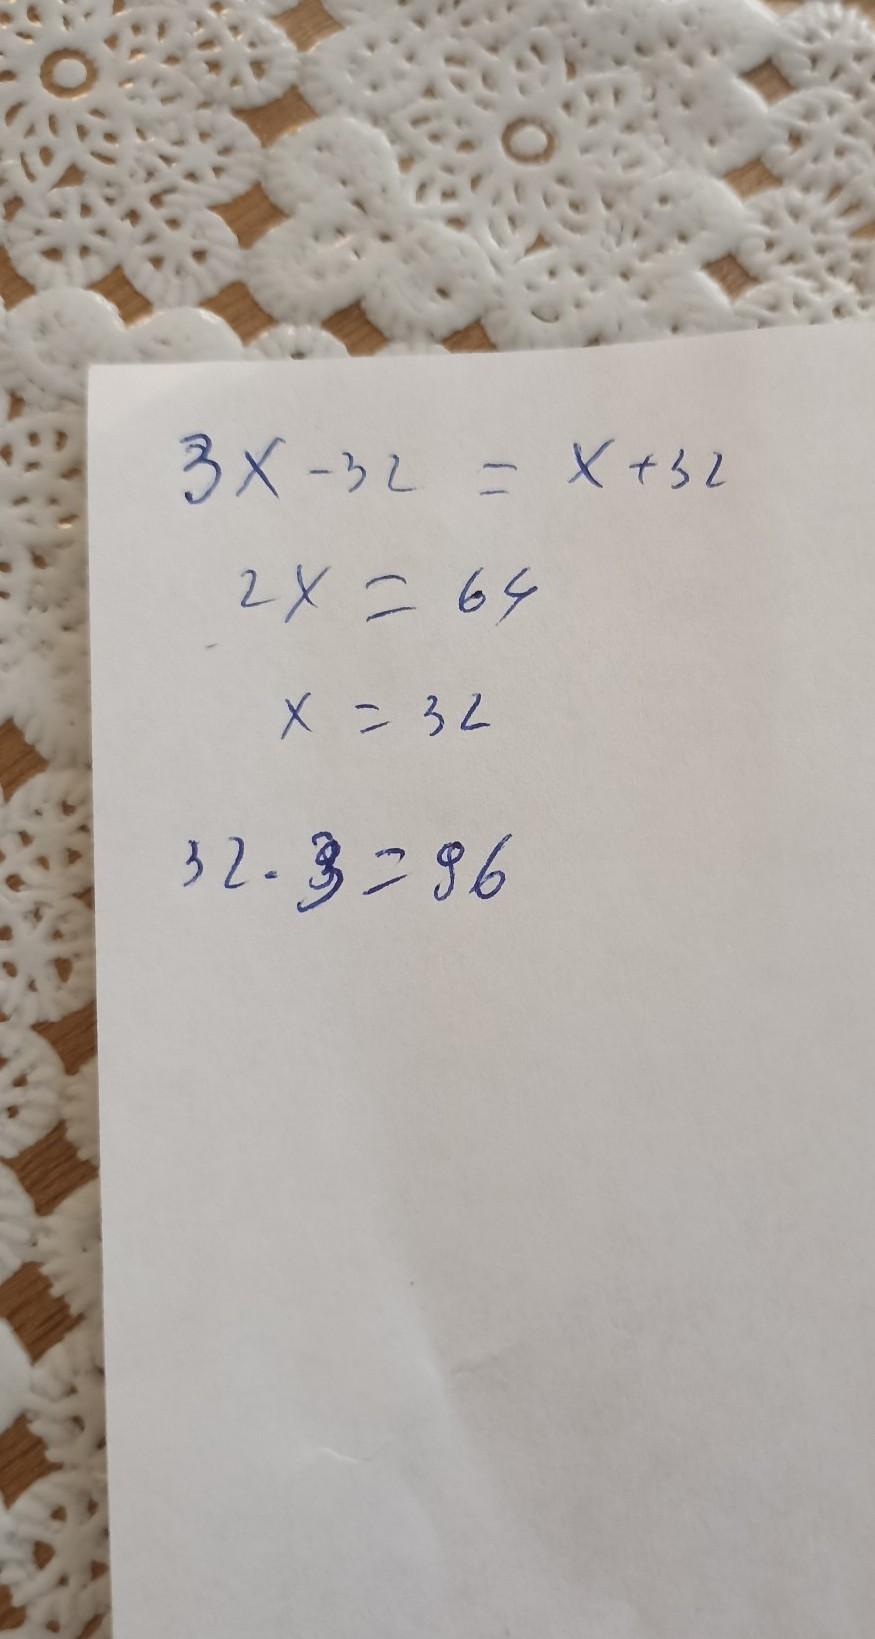 3x - 32 = x + 32
2x = 64
x = 32
32 . 3 = 96